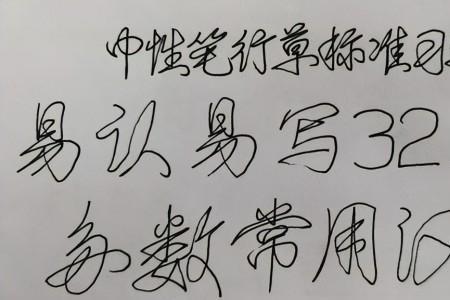 中性笔行草标准
易认易写32
多数常用